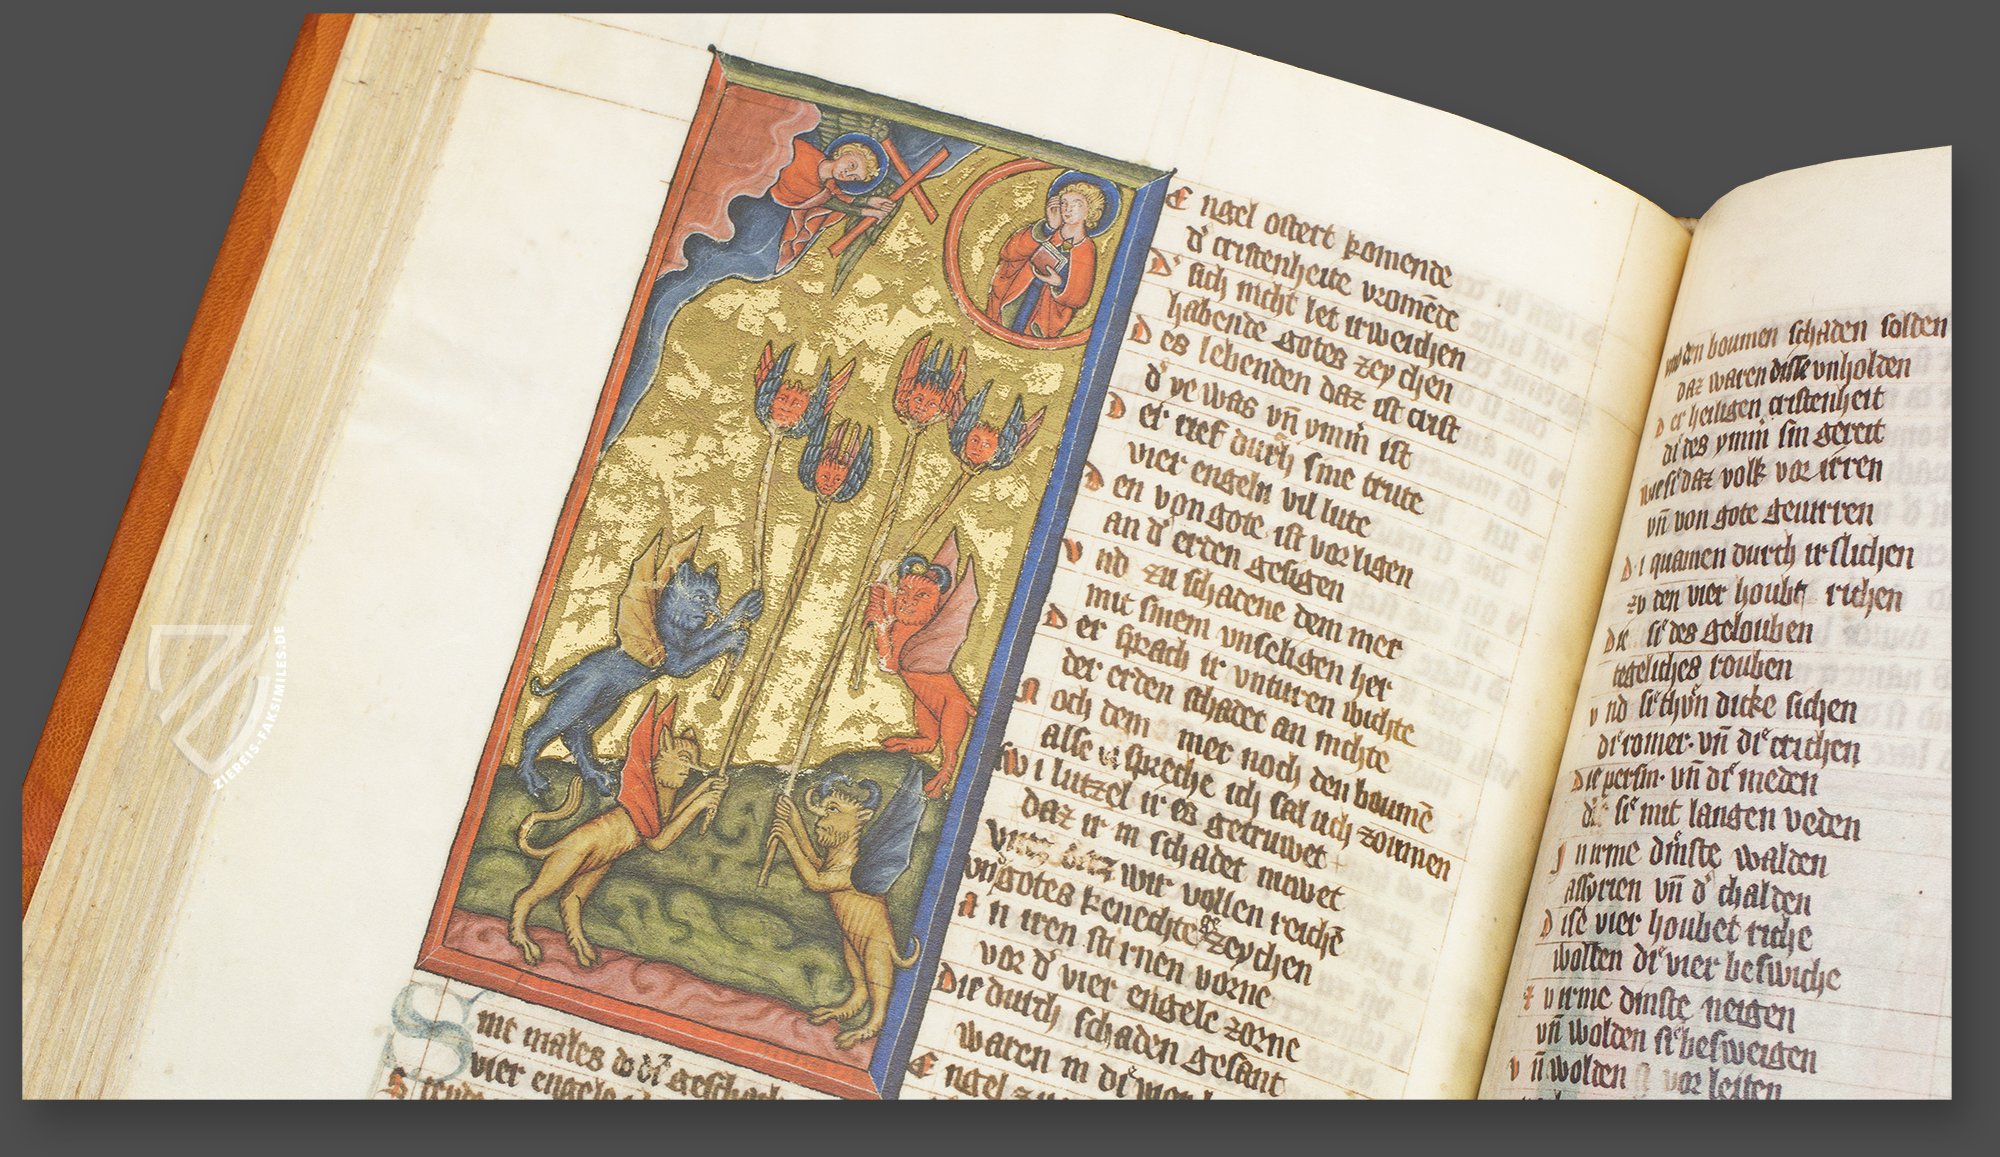 Sint males do di geschach
vier engele
E ngel ostert komende
d' cristenheite vromede
D' sich nicht let irweichen
habende gotes zeychen
D es lebenden daz ist crist
d' ye was vn ymm ist
D er rief durch sine trute
vier engeln vil lute
D en von gote ist vor ligen
an d' erden gesigen
v nd zu schadene dem mer
mit sinem vnseligen her
D er sprach ir vnturen wichte
der erden schadet an nichte
N och dem mer noch den boume
alse u spreche ich sal uch zoumen
Sw i lutzel ir es getruwet
daz ir in schadet nuwet
vntz daz wir vollen reiche
vn gotes kenechte ge zeychen
A n iren stirnen vorne
vor d' vier engele zorne
Die durch schaden gesant
waren in di
E ngel
vnd den boumen schaden solden
daz waren disse vnholden
D er heiligen cristenheit
di des ymm sin gereit
daz volk vor irren
vn von gote gevirren
D i quamen durch ir slichen
zv den vier houbt richen
Die si des gelouben
tegeliches rouben
v nd si thvn dicke sichen
di romer. vn di crichen
Die persin. vn di meden
da sie mit langen veden
J n irme dinste walden
assyrien vn d' chalden
D ise vier houbet riche
wolten di vier beswiche
zv irme dinste neigen
vn wolden si besweigen
v n wolden si vor leiten
ZIEREIS-FAKSIMILES.DE